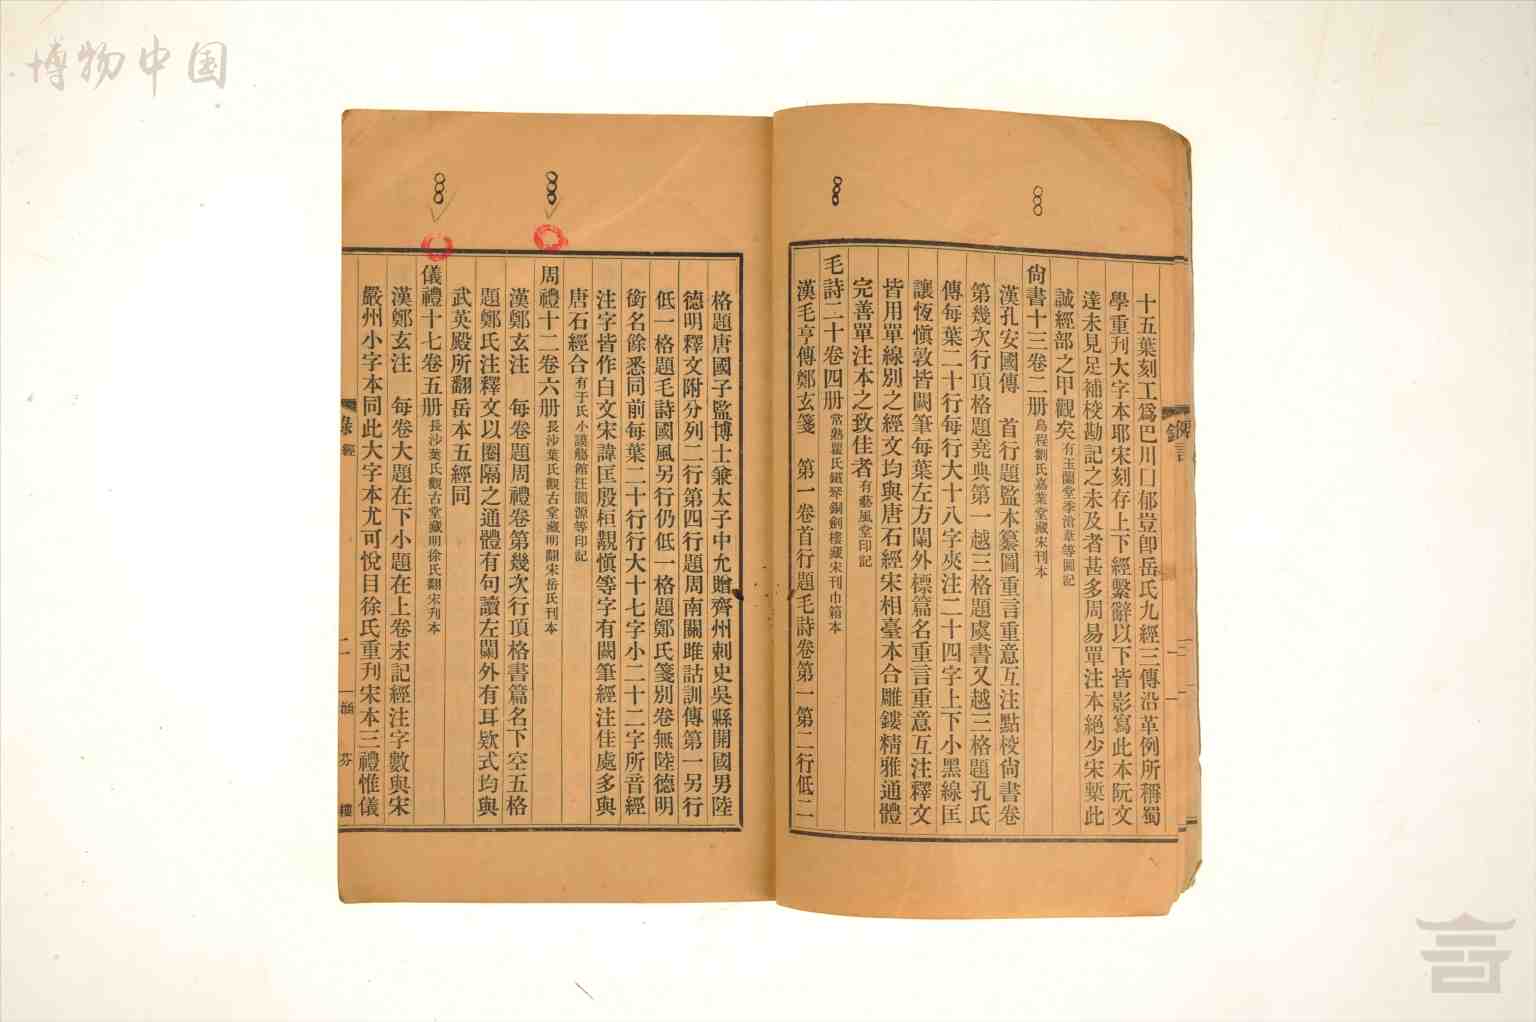 博物中国
十五葉刻工爲巴川口郁豈卽岳氏九經三傳沿革例所稱蜀
學重刊大字本耶宋刻存上下經繫辭以下皆影寫此本阮文
達未見足補校勘記之未及者甚多周易單注本絕少宋槧此
誠經部之甲觀矣有玉蘭堂季滄葦等圖記
尙書十三卷二册烏程劉氏嘉業堂藏宋刊本
漢孔安國傳 首行題監本纂圖重言重意互注點校尙書卷
第幾次行頂格題堯典第一越三格題虞書又越三格題孔氏
傳每葉二十行每行大十八字夾注二十四字上下小黑線匡
讓恆愼敦皆闕筆每葉左方闌外標篇名重言重意互注釋文
皆用單線別之經文均與唐石經宋相臺本合雕鏤精雅通體
完善單注本之致佳者有藝風堂印記
毛詩二十卷四册常熟瞿氏鐵琴銅劍樓藏宋刊巾箱本
漢毛亨傳鄭玄箋 第一卷首行題毛詩卷第一第二行低二
格題唐國子監博士兼太子中允贈齊州刺史吳縣開國男陸
德明釋文附分列二行第四行題周南關雎詁訓傳第一另行
低一格題毛詩國風另行仍低一格題鄭氏箋別卷無陸德明
銜名餘悉同前每葉二十行行大十七字小二十二字所音經
注字皆作白文宋諱匡殷桓覯愼等字有闕筆經注佳處多與
唐石經合有于氏小謨觴館汪閬源等印記
周禮十二卷六册長沙葉氏觀古堂藏明翻宋岳氏刊本
漢鄭玄注 每卷題周禮卷第幾次行頂格書篇名下空五格
題鄭氏注釋文以圈隔之通體有句讀左闌外有耳欵式均與
武英殿所翻岳本五經同
儀禮十七卷五册長沙葉氏觀古堂藏明徐氏翻宋刋本
漢鄭玄注 每卷大題在下小題在上卷末記經注字數與宋
嚴州小字本同此大字本尤可悅目徐氏重刊宋本三禮惟儀
錄 經
二
涵芬樓